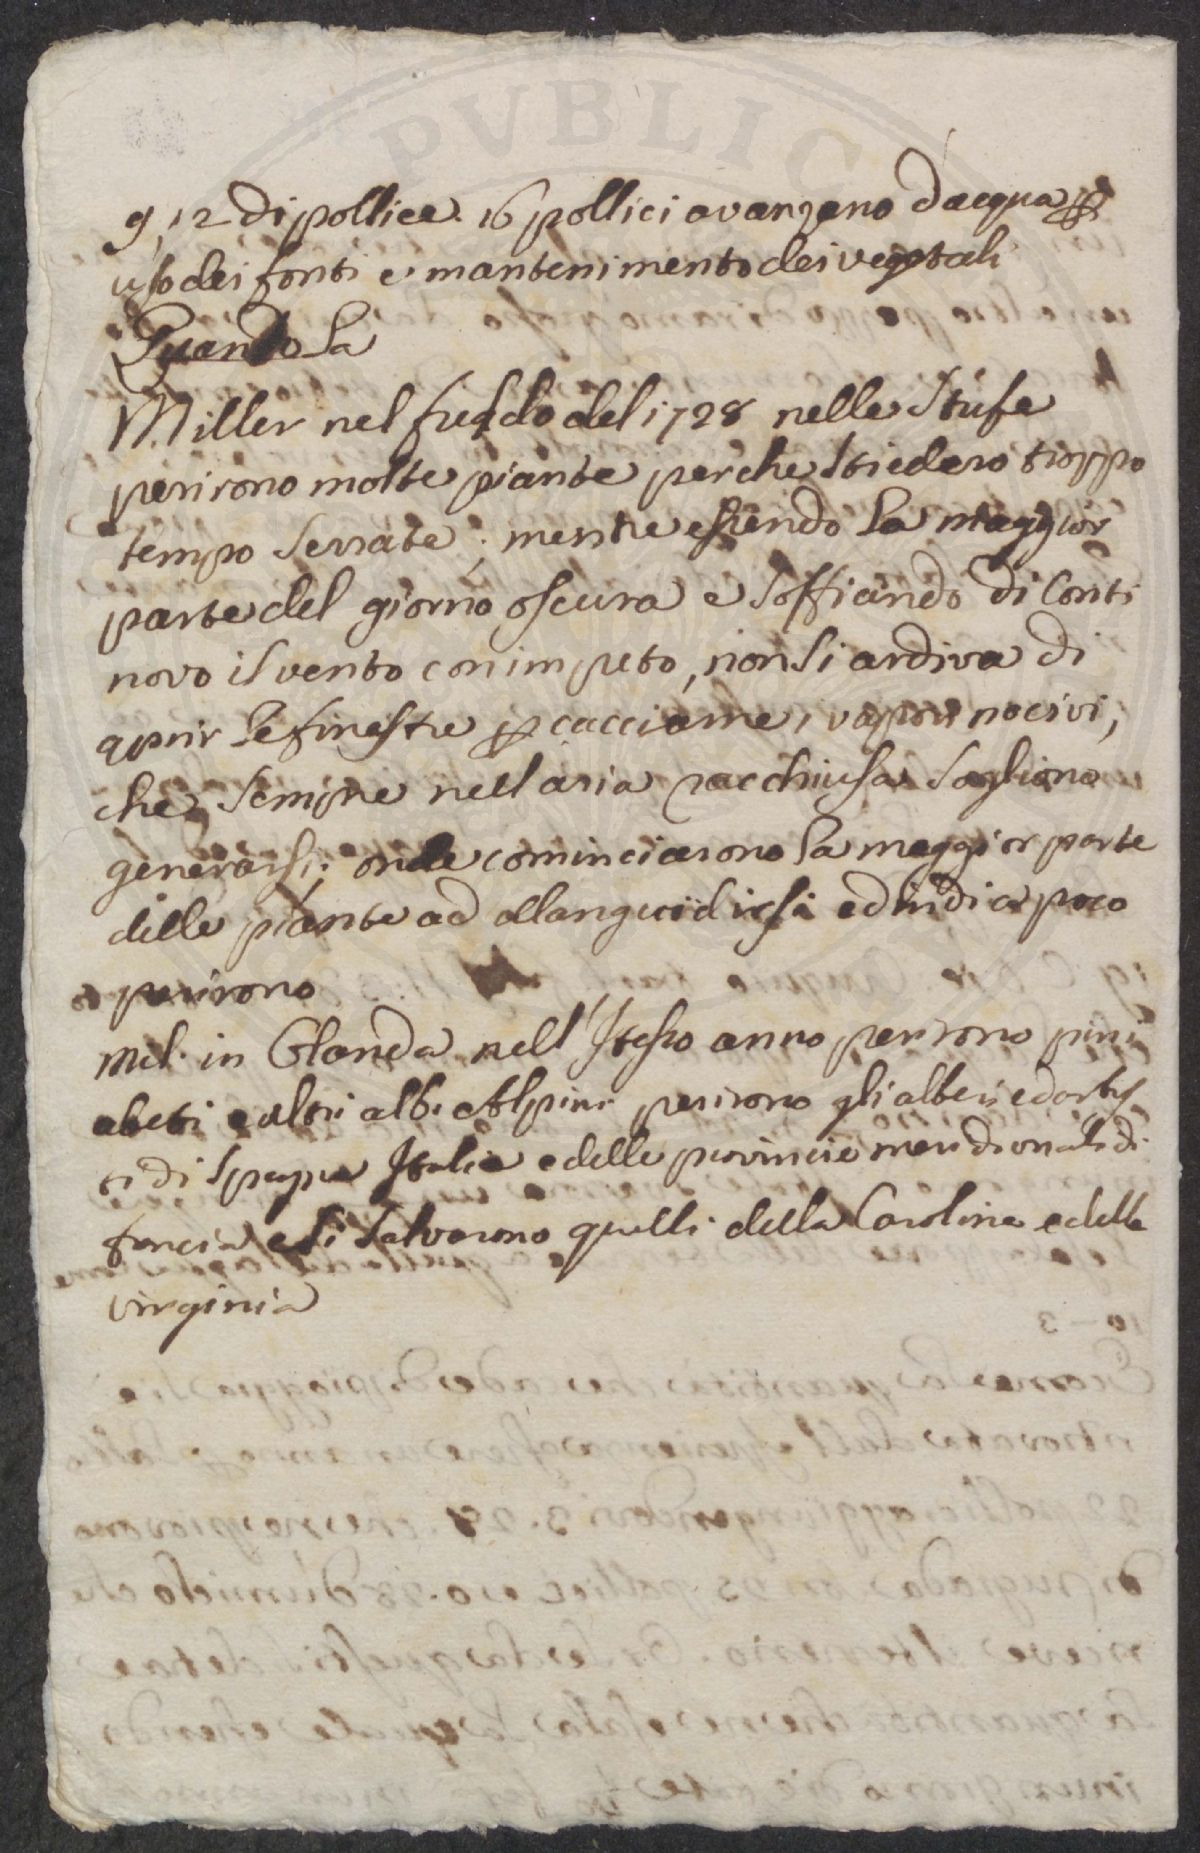 9,12 di pollice. 16 pollici avanzano d'acqua p
uso dei fonti e mantenimento dei vegetali
Quando la
Miller nel freddo del 1728 nelle Stufe
perirono molte piante perche Stiedero troppo
tempo Serrate; mentre essendo la maggior
parte del giorno oscura e Soffiando di Conti
novo il vento con impeto, non Si ardiva di
aprir le finestre p cacciarne i vapori nocivi,
che Sempre nell aria racchiusa Sogliono
generarsi; onde cominciarono la maggior parte
delle piante ad allanguidirsi ed indi a poco
perirono
Mil. in Olanda nell'Istesso anno perirono pini
abeti e altri alb. Alpini perirono gli alberi ed arbus
ti di Spagna Italia e delle provincie meridionali di
francia e Si Salvarono quelli della Carolina e della
virginia